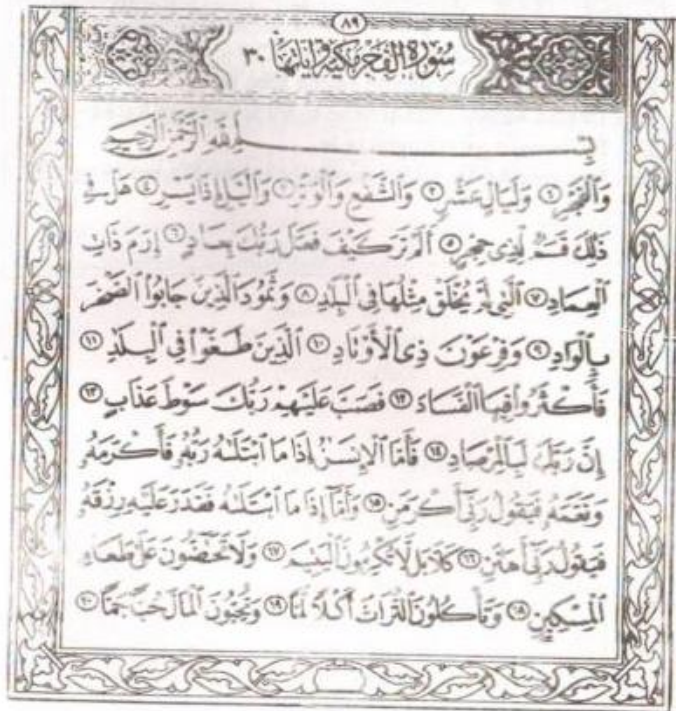 ٨٩
سُورَةُ الفَجْرِ مَكِّيَّةٌ وَآيَاتُهَا ٣٠
بِسْمِ ٱللَّهِ ٱلرَّحْمَٰنِ ٱلرَّحِيمِ
وَٱلْفَجْرِ ١ وَلَيَالٍ عَشْرٍ ٢ وَٱلشَّفْعِ وَٱلْوَتْرِ ٣ وَٱلَّيْلِ إِذَا يَسْرِ ٤ هَلْ فِى
ذَٰلِكَ قَسَمٌ لِّذِى حِجْرٍ ٥ أَلَمْ تَرَ كَيْفَ فَعَلَ رَبُّكَ بِعَادٍ ٦ إِرَمَ ذَاتِ
ٱلْعِمَادِ ٧ ٱلَّتِى لَمْ يُخْلَقْ مِثْلُهَا فِى ٱلْبِلَٰدِ ٨ وَثَمُودَ ٱلَّذِينَ جَابُوا۟ ٱلصَّخْرَ
بِٱلْوَادِ ٩ وَفِرْعَوْنَ ذِى ٱلْأَوْتَادِ ١٠ ٱلَّذِينَ طَغَوْا۟ فِى ٱلْبِلَٰدِ ١١
فَأَكْثَرُوا۟ فِيهَا ٱلْفَسَادَ ١٢ فَصَبَّ عَلَيْهِمْ رَبُّكَ سَوْطَ عَذَابٍ ١٣
إِنَّ رَبَّكَ لَبِٱلْمِرْصَادِ ١٤ فَأَمَّا ٱلْإِنسَٰنُ إِذَا مَا ٱبْتَلَىٰهُ رَبُّهُۥ فَأَكْرَمَهُۥ
وَنَعَّمَهُۥ فَيَقُولُ رَبِّىٓ أَكْرَمَنِ ١٥ وَأَمَّآ إِذَا مَا ٱبْتَلَىٰهُ فَقَدَرَ عَلَيْهِ رِزْقَهُۥ
فَيَقُولُ رَبِّىٓ أَهَٰنَنِ ١٦ كَلَّا بَل لَّا تُكْرِمُونَ ٱلْيَتِيمَ ١٧ وَلَا تَحَٰٓضُّونَ عَلَىٰ طَعَامِ
ٱلْمِسْكِينِ ١٨ وَتَأْكُلُونَ ٱلتُّرَاثَ أَكْلًا لَّمًّا ١٩ وَتُحِبُّونَ ٱلْمَالَ حُبًّا جَمًّا ٢٠